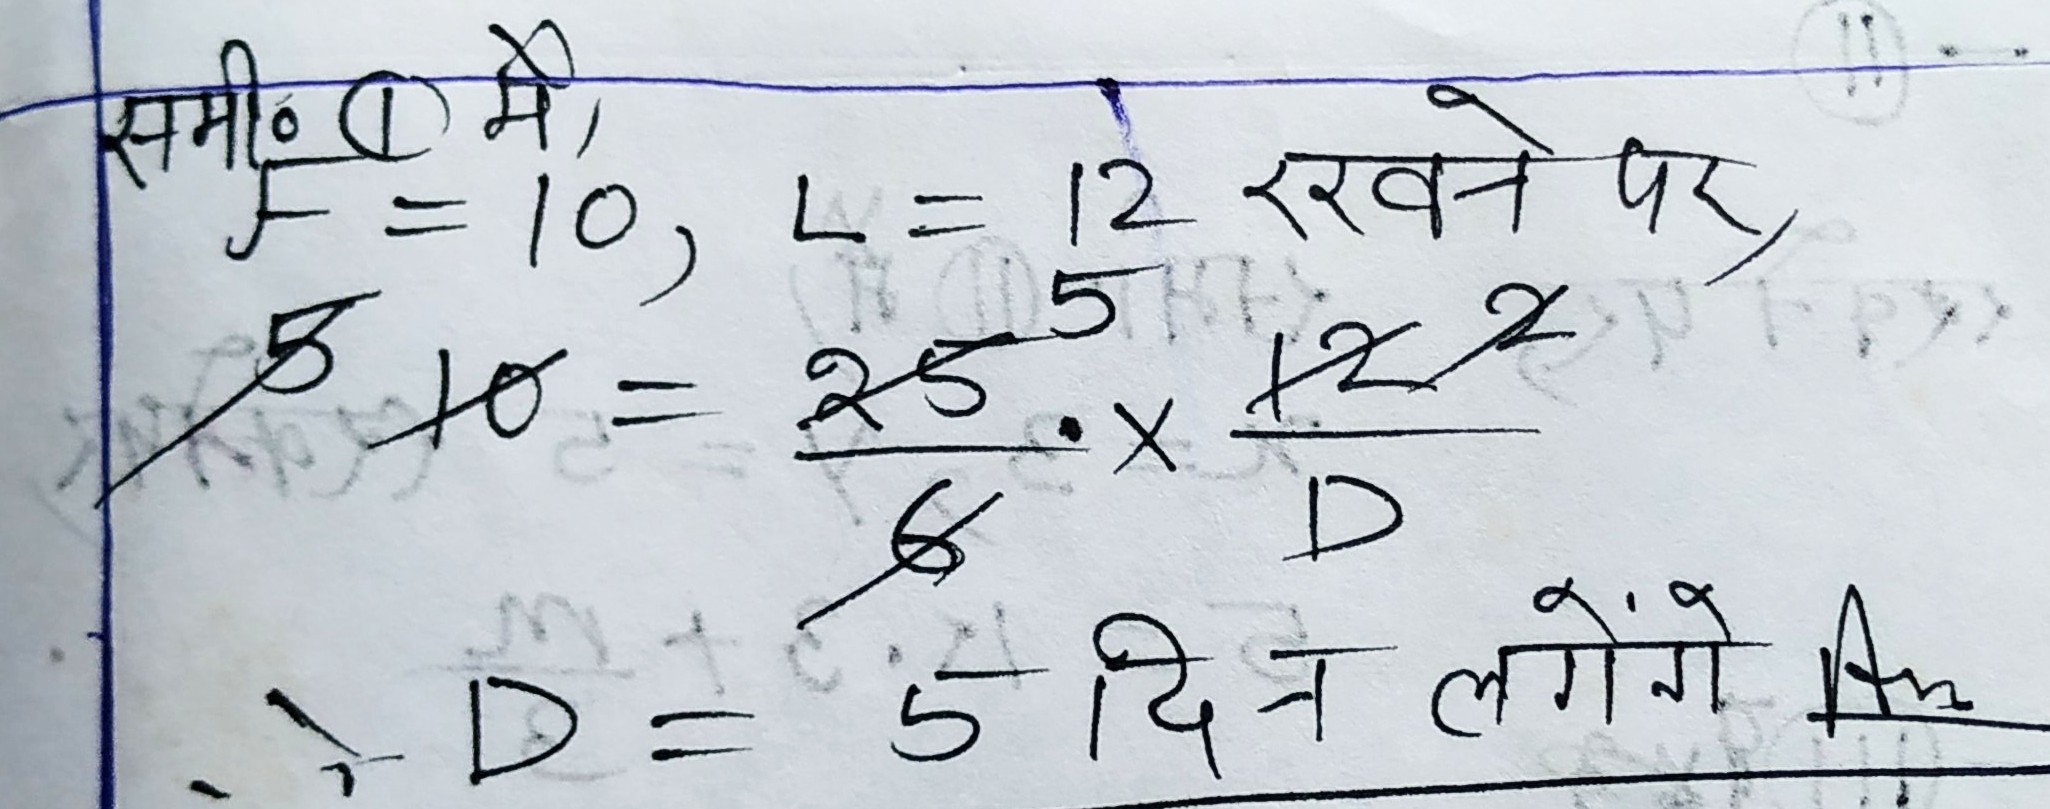 समी० ① में,
F = 10, L = 12 रखने पर,
5 10 = 25 5 / 6 × 12 2 / D
∴ D = 5 दिन लगेंगे Ans